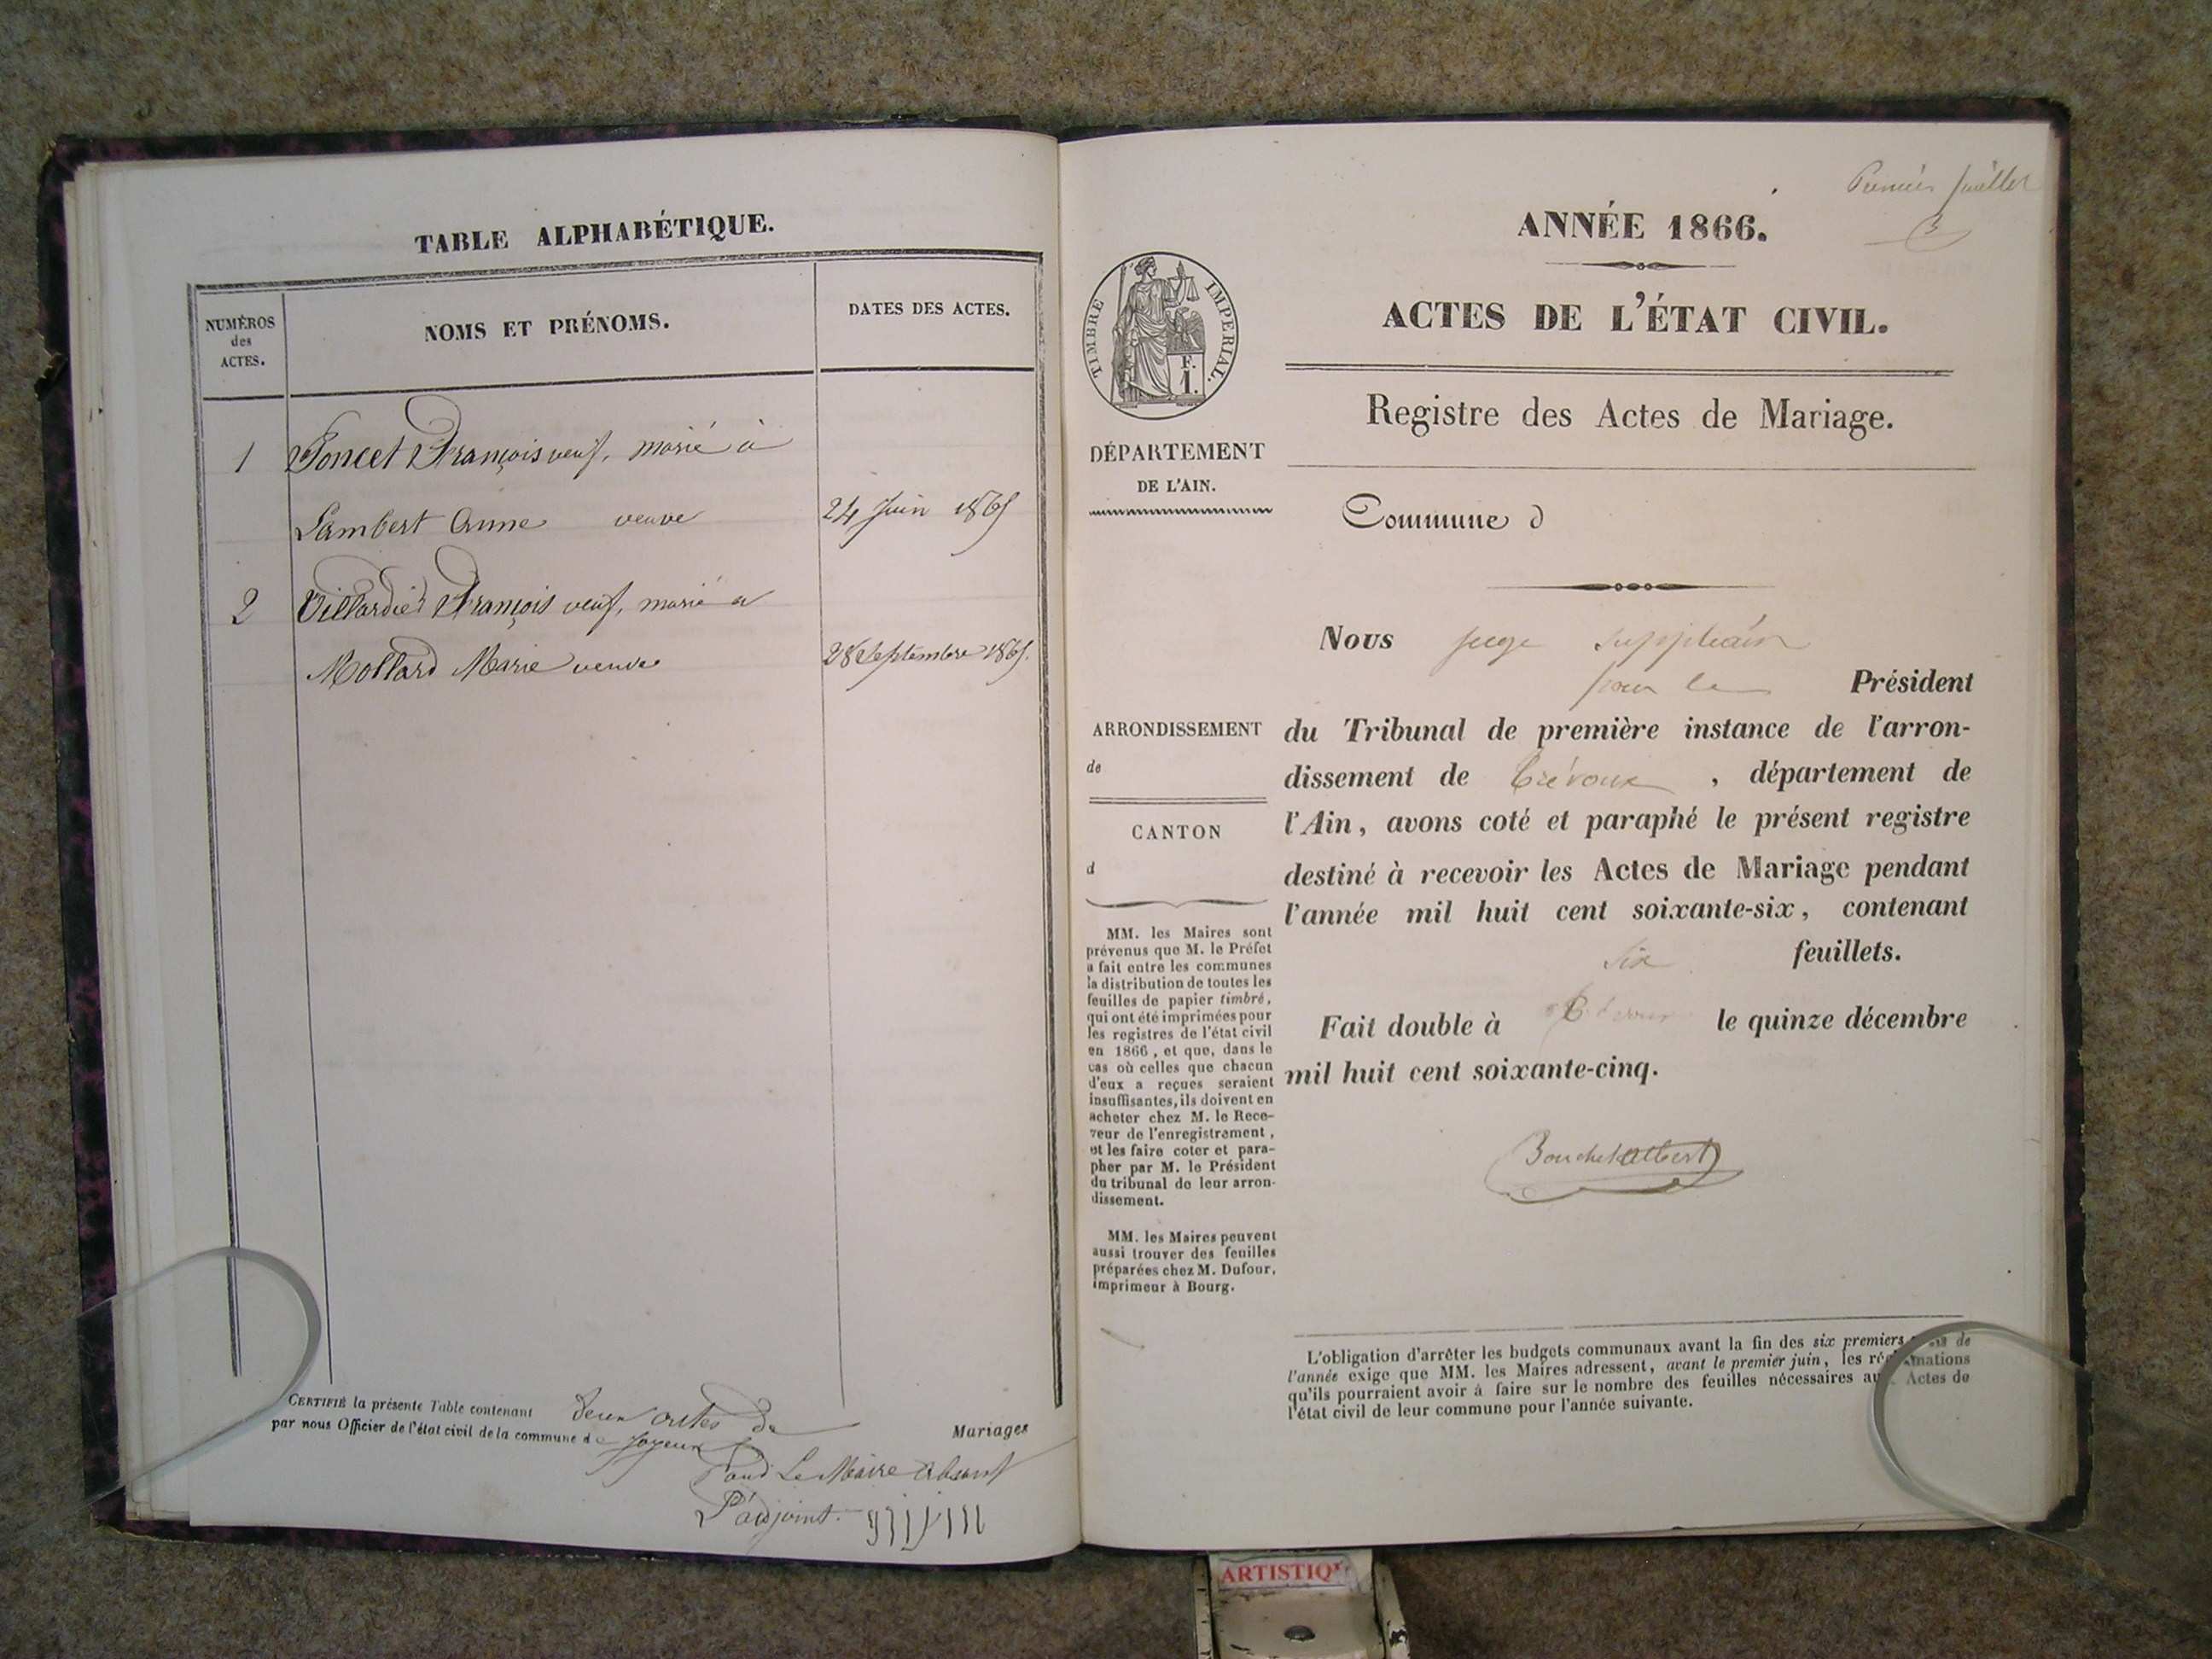 TABLE ALPHABÉTIQUE.
NUMÉROS
des
ACTES.
NOMS ET PRÉNOMS.
DATES DES ACTES.
1 Poncet François veuf, marié à
Lambert Anne veuve 24 Juin 1865
2 Villardier François veuf, marié a
Mollard Marie veuve 28 Septembre 1865.
CERTIFIÉ la présente Table contenant deux actes de Mariages
par nous Officier de l'état civil de la commune de Joyeux
Pour Le Maire Absent
L'adjoint
Premier feuillet
ANNÉE 1866.
ACTES DE L'ÉTAT CIVIL.
TIMBRE IMPERIAL.
F.
1.
Registre des Actes de Mariage.
DÉPARTEMENT
DE L'AIN.
Commune d
Nous juge suppléant
pour le Président
ARRONDISSEMENT
de
CANTON
d
du Tribunal de première instance de l'arron-
dissement de Trévoux , département de
l'Ain, avons coté et paraphé le présent registre
destiné à recevoir les Actes de Mariage pendant
l'année mil huit cent soixante-six, contenant
six feuillets.
Fait double à Trévoux le quinze décembre
mil huit cent soixante-cinq.
MM. les Maires sont
prévenus que M. le Préfet
a fait entre les communes
la distribution de toutes les
feuilles de papier timbré,
qui ont été imprimées pour
les registres de l'état civil
en 1866, et que, dans le
cas où celles que chacun
d'eux a reçues seraient
insuffisantes, ils doivent en
acheter chez M. le Rece-
veur de l'enregistrement,
et les faire coter et para-
pher par M. le Président
du tribunal de leur arron-
dissement.
MM. les Maires peuvent
aussi trouver des feuilles
préparées chez M. Dufour,
imprimeur à Bourg.
L'obligation d'arrêter les budgets communaux avant la fin des six premiers mois de
l'année exige que MM. les Maires adressent, avant le premier juin, les réclamations
qu'ils pourraient avoir à faire sur le nombre des feuilles nécessaires aux Actes de
l'état civil de leur commune pour l'année suivante.
ARTISTIQU